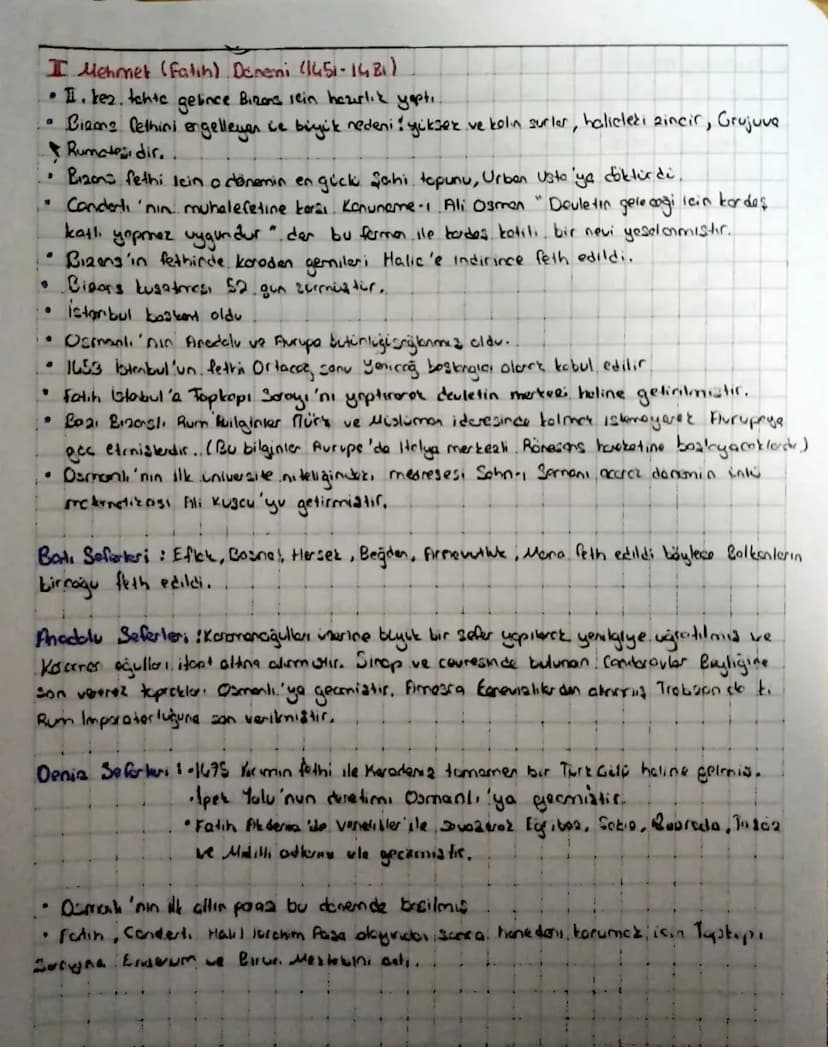 II Mehmet (Fatih) Dönemi (1451-1481)
• II. kez tahta gelince Bizans için hazırlık yaptı.
• Bizans fethini engelleyen üç büyük nedeni: yüksek ve kalın surlar, haliçteki zincir, Grujuva
Rumateşidir.
• Bizans fethi için o dönemin en güçlü Şahi topunu, Urban Usta'ya döktürdü.
• Çandarlı'nın muhalefetine karşı Kanuname-i Ali Osman "Devletin geleceği için kardeş
katli yapmaz uygundur" der bu ferman ile kardeş katili bir nevi yasalanmıştır.
• Bizans'ın fethinde karadan gemileri Haliç'e indirince feth edildi.
• Bizans kuşatması 52 gün sürmüştür.
• İstanbul başkent oldu
• Osmanlı'nın Anadolu ve Avrupa bütünlüğü sağlanmış oldu.
• 1453 İstanbul'un fethi Ortaçağ sonu Yeniçağ başlangıcı olarak kabul edilir
• Fatih İstabul'a Topkapı Sarayı'nı yaptırarak devletin merkezi haline getirilmiştir.
• Bazı Bizanslı Rum bilginler Türk ve Müslüman idaresinde kalmak istemeyerek Avrupaya
göç etmişlerdir. (Bu bilginler Avrupa'da İtalya merkezli Rönesans hareketine başlayacaklardır)
• Osmanlı'nın ilk üniversite niteliğindeki medresesi Sahn-ı Seman açarak dönemin ünlü
matematikçisi Ali Kuşçu'yu getirmiştir.
Batı Seferleri: Eflak, Bosna, Hersek, Boğdan, Arnavutluk, Mora feth edildi böylece Balkanların
birçoğu feth edildi.
Anadolu Seferleri: Karamanoğulları üzerine büyük bir sefer yapılarak yenilgiye uğratılmış ve
Karaman oğulları itaat altına alınmıştır. Sinop ve çevresinde bulunan Candarovlar Beyliğine
son vererek toprakları Osmanlı'ya geçmiştir. Amasra Cenevizlilerden alınmış Trabzon'da ki
Rum İmparatorluğuna son verilmiştir.
Deniz Seferleri: • 1475 Kırımın fethi ile Karadeniz tamamen bir Türk Gölü haline gelmiş.
• İpek Yolu'nun denetimi Osmanlı'ya geçmiştir.
• Fatih Akdeniz'de Venedikler'ile Eğriboz, Taşöz
ve Midilli adlarını ele geçirmiştir.
• Osmanlı'nın ilk altın para bu dönemde basılmış
• Fatih, Çandarlı Halil İbrahim Paşa sonra hanedanı korumak için Topkapı
Sarayına Enderum ve Birun Mektebini açtı.